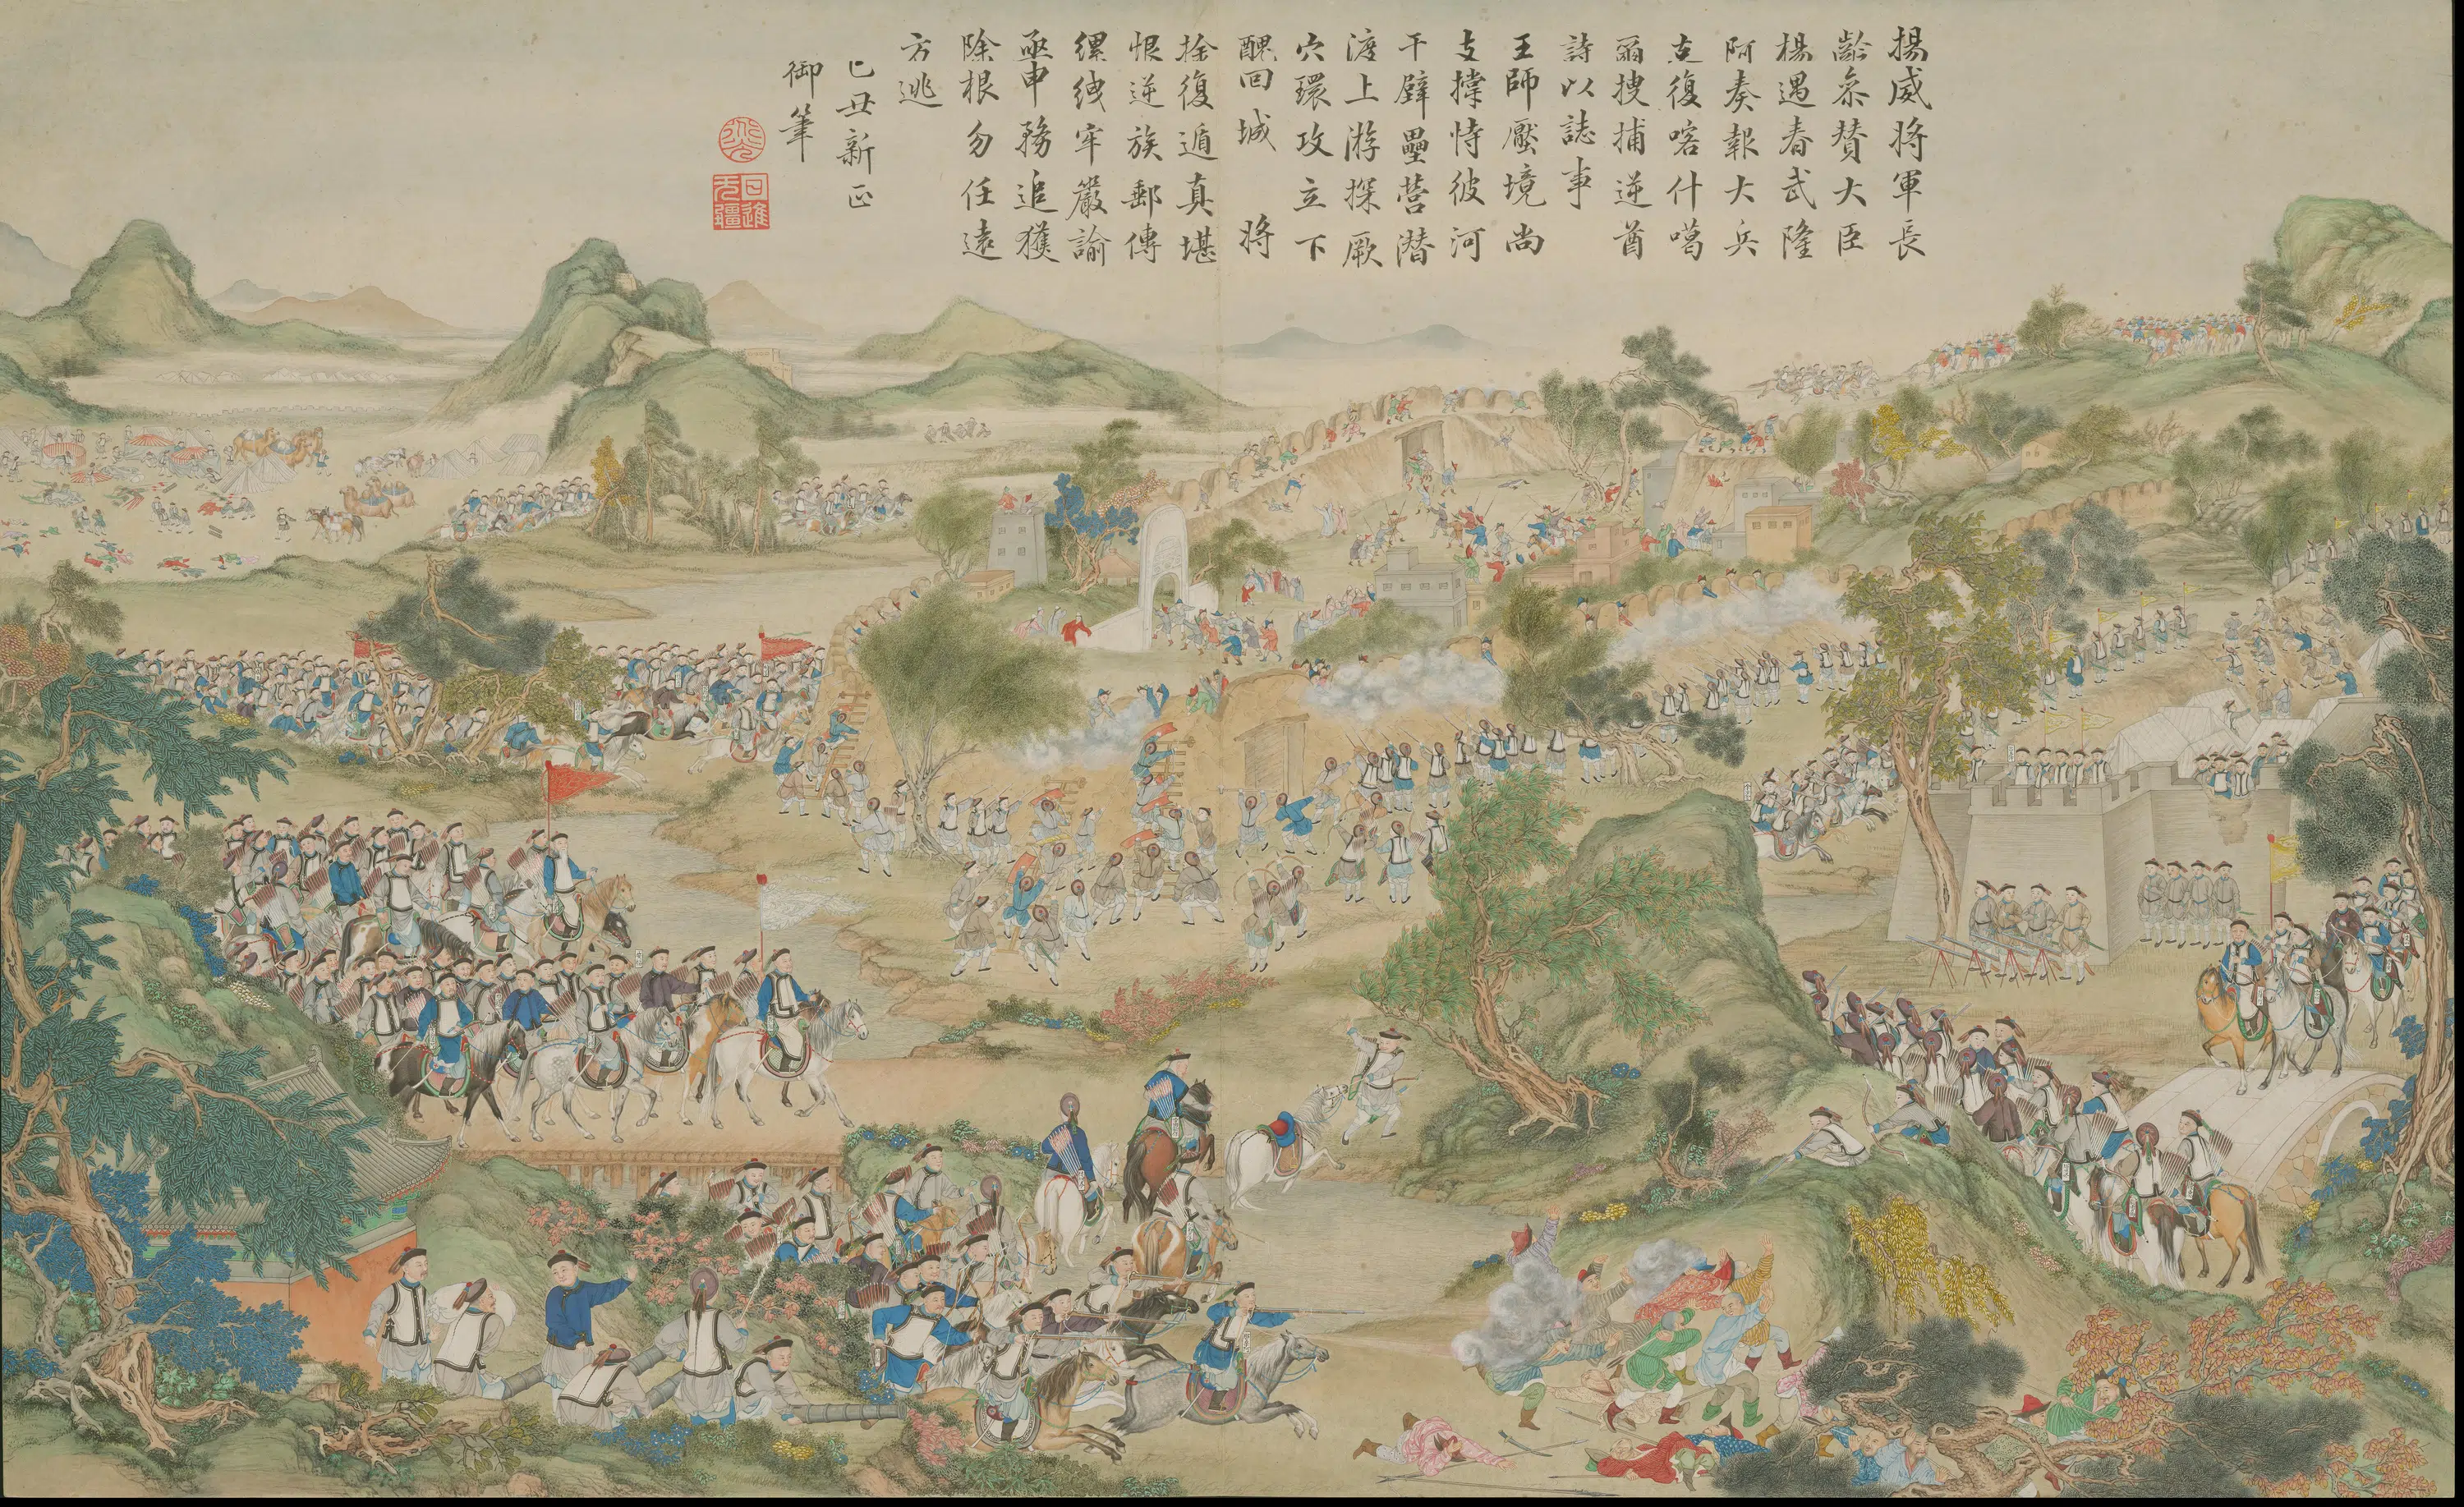 揚威將軍長
齡叅贊大臣
楊遇春武隆
阿奏報大兵
克復喀什噶
爾搜捕逆酋
詩以誌事
王師壓境尚
支撐恃彼河
干壁壘營潛
渡上游探厥
穴環攻立下
醜回城將
捨復遁真堪
恨逆族郵傳
縲絏牢嚴諭
亟申務追獲
除根勿任遠
方逃
己丑新正
御筆
日進
无疆